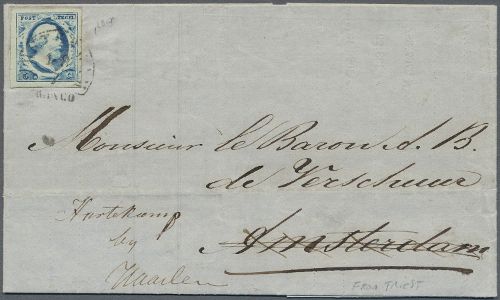 POST ZEGEL
FRANCO
Monsieur le Baron A. B.
de Verschuer
Amsterdam
Hartekamp
by
Haarlem
FROM TRIEST